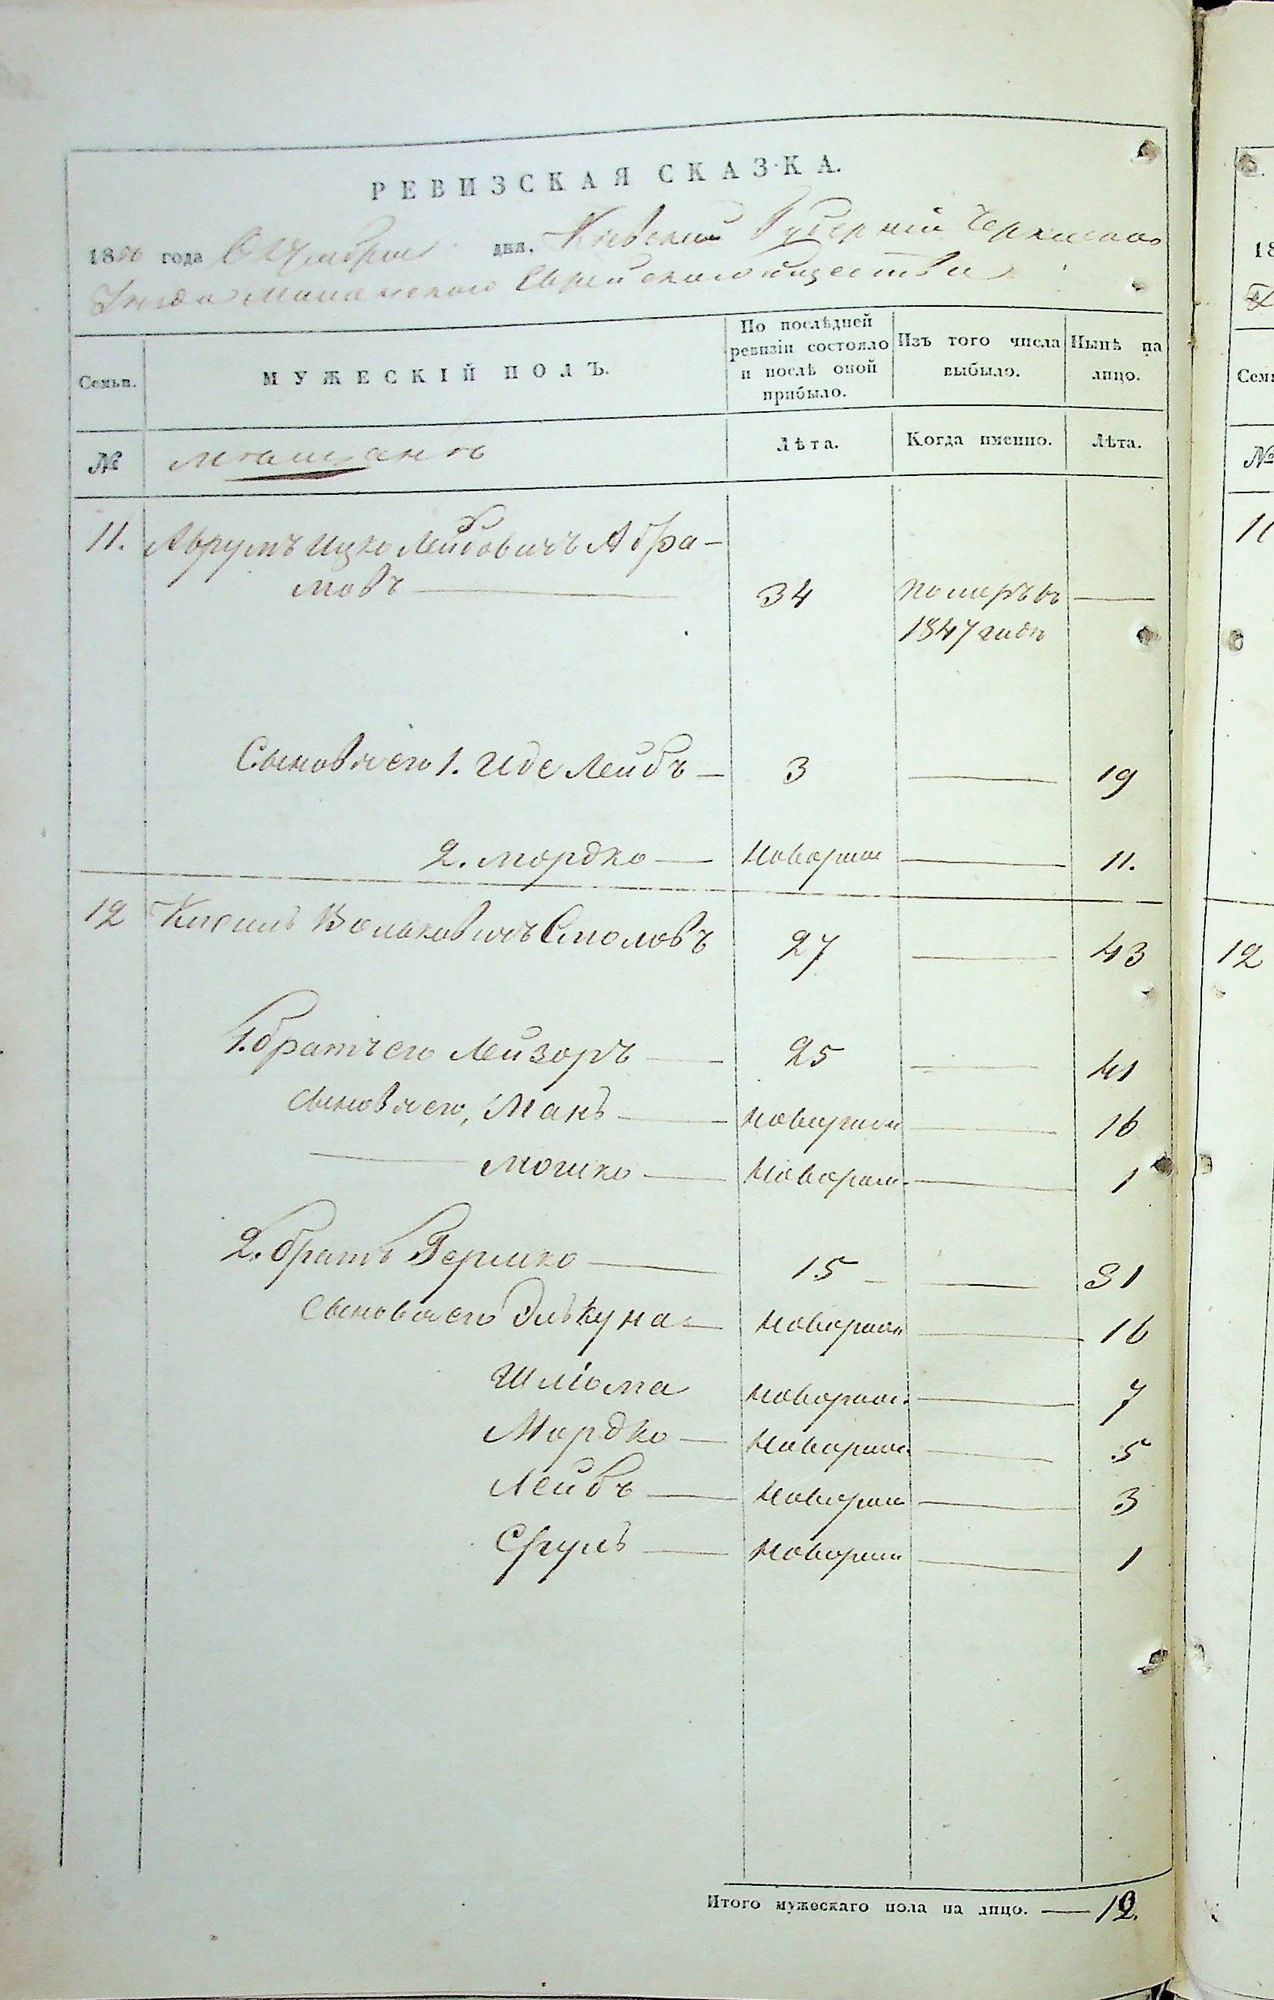 РЕВИЗСКАЯ СКАЗКА.
1850 года Октября дня. Кіевской Губерніи Черкаскаго
Уѣзда Еврейскаго общества
Семьи.
МУЖЕСКІЙ ПОЛЪ.
По послѣдней ревизіи состояло и послѣ оной прибыло.
Изъ того числа выбыло.
Нынѣ на лицо.
№ мѣщанъ Лѣта. Когда именно. Лѣта.
11. Аврумъ Ицко Лейбовичъ Абра-
мовъ — 34 померъ въ —
1847 годѣ
Сыновья его 1. Иде Лейбъ — 3 — 19
2. Мордко — Новорож — 11.
12 Кисиль Вольковичъ Смоловъ 27 — 43
1. братъ его Лейзоръ — 25 — 41
Сыновья его, Манъ — Новорож — 16
— Мошко — Новорож. — 1
2. братъ Гершко — 15 — 31
Сыновья его Элькуна — Новорож — 16
Шліома Новорож. — 7
Мордко — Новорож. — 5
Лейбъ — Новорож — 3
Сруль — Новорож — 1
Итого мужескаго пола на лицо. — 12.
18
Семьи
№
11
12